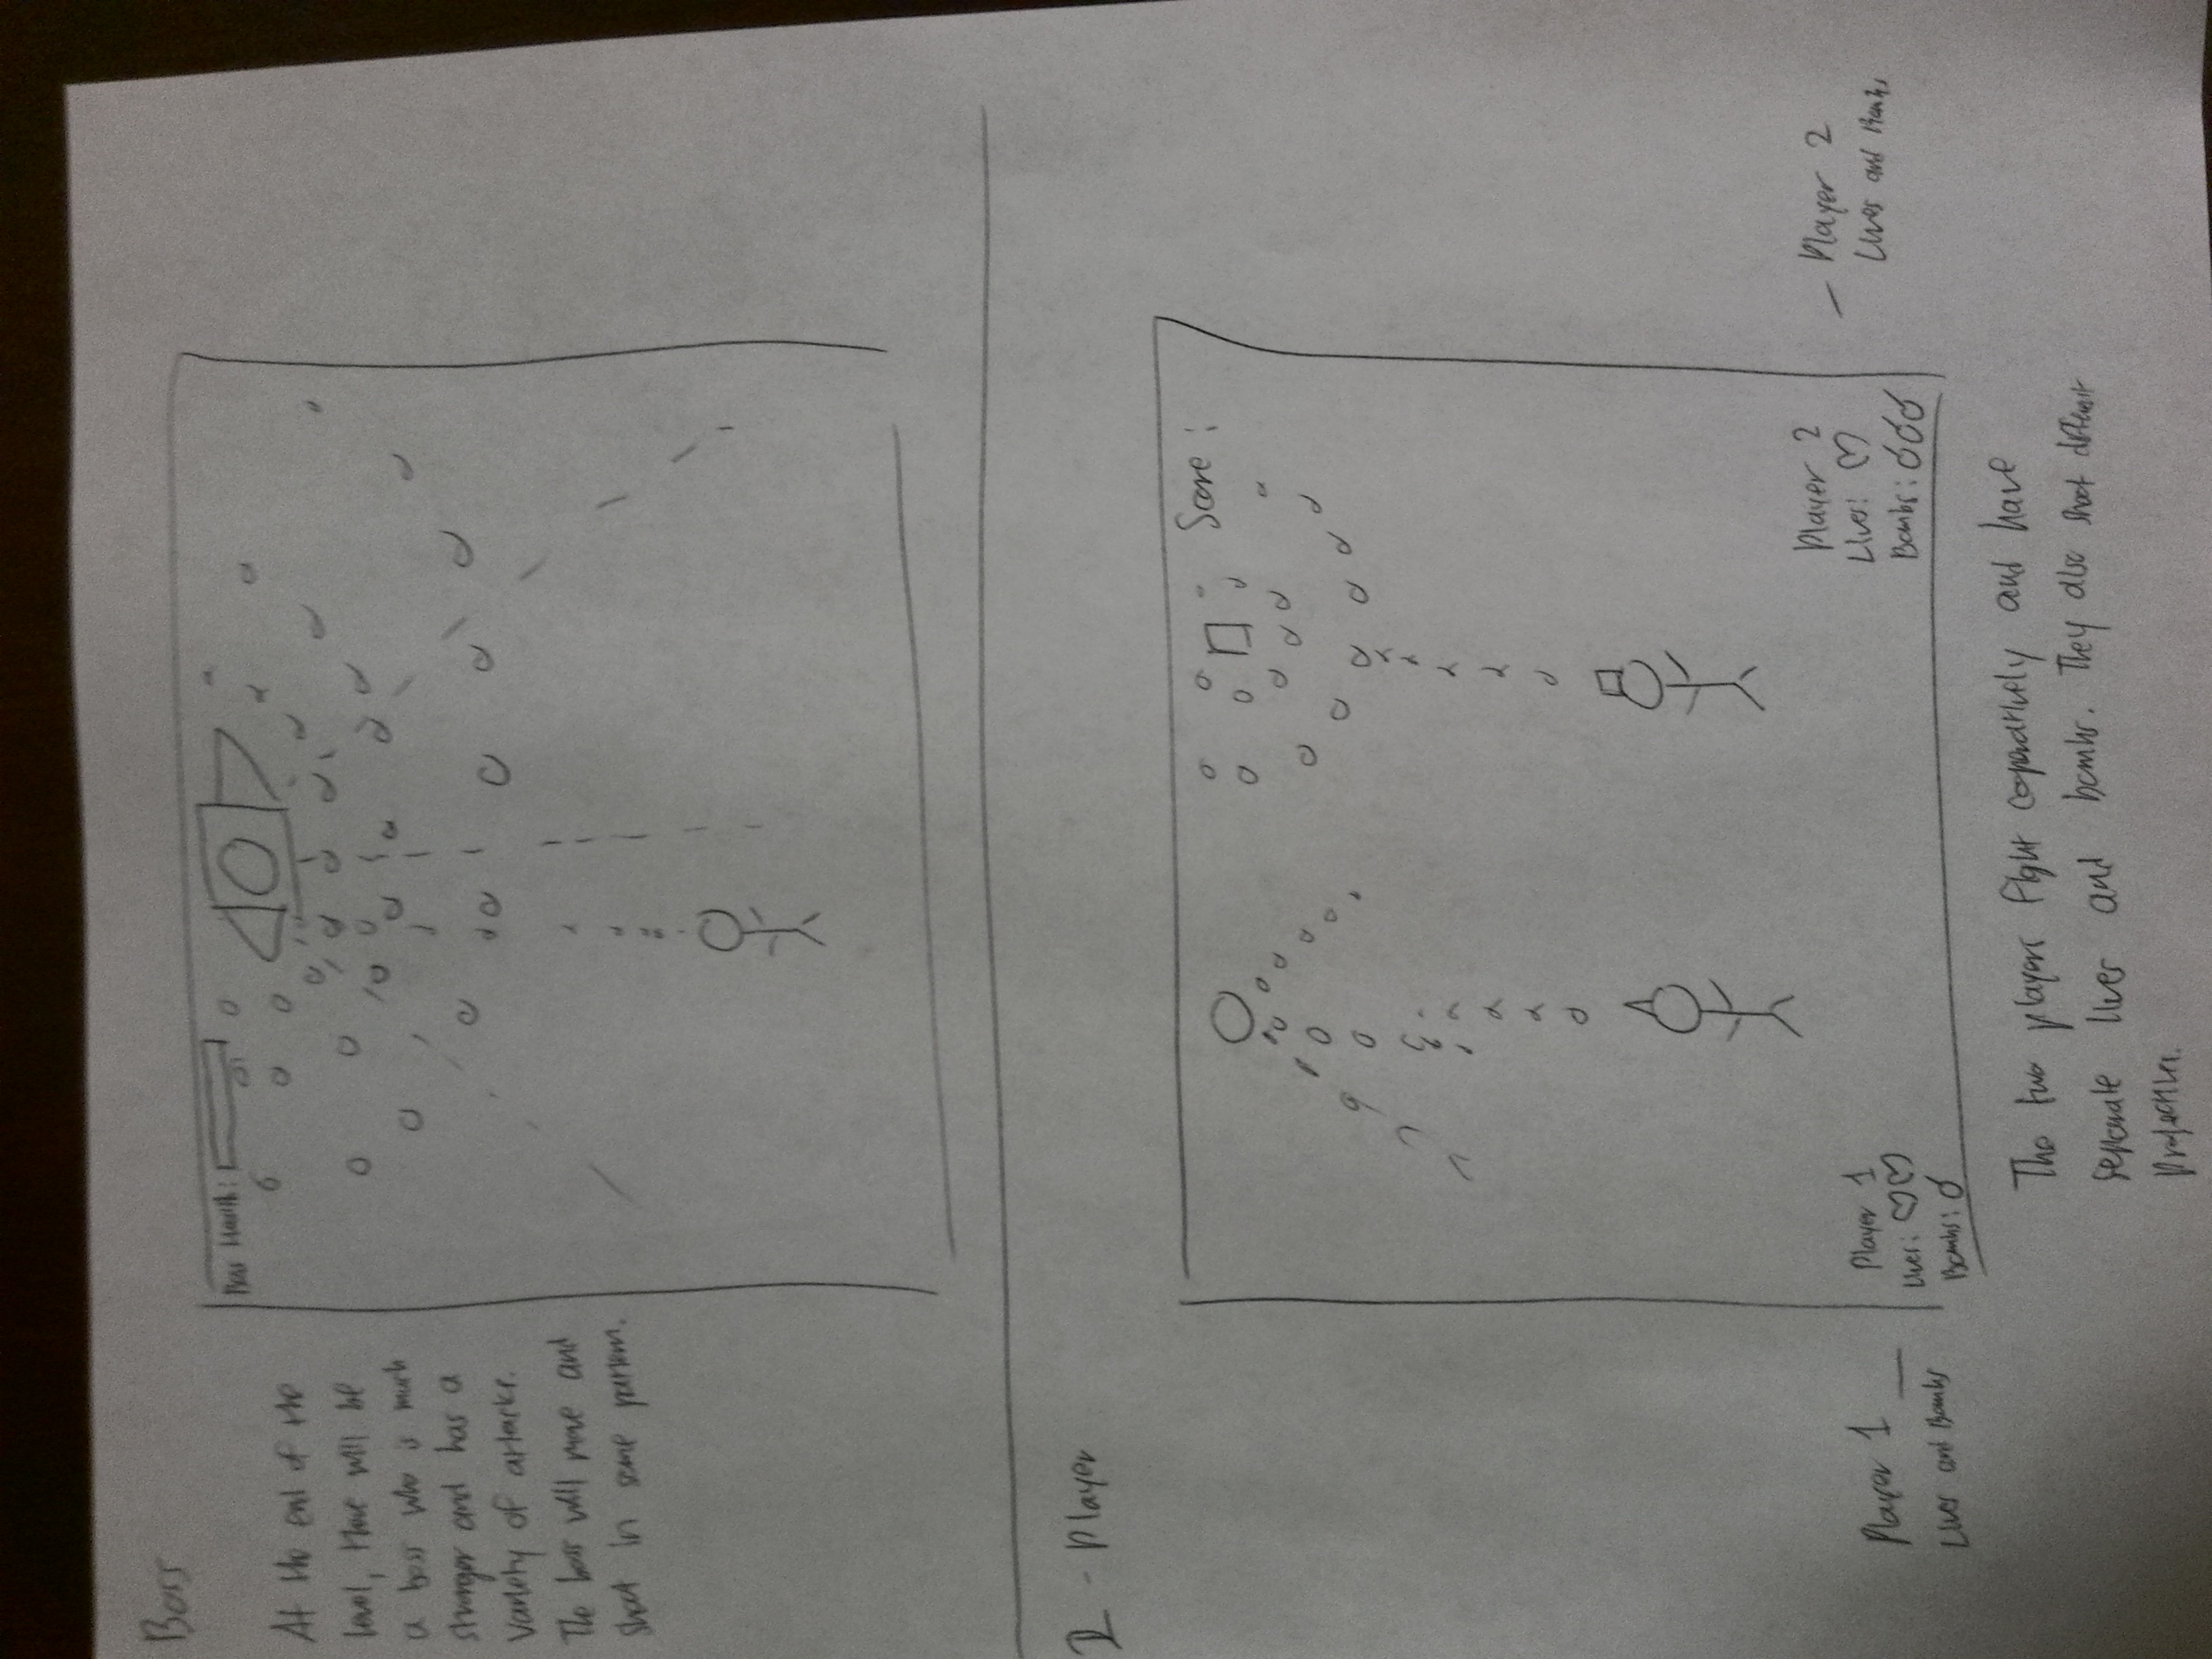 Boss
Boss Health:
At the end of the
level, there will be
a boss who is much
stronger and has a
variety of attacks.
The boss will move and
shoot in some pattern.
2 - Player
Score :
Player 1
Lives and Bombs
Player 1
Lives:
Bombs:
Player 2
Lives:
Bombs:
Player 2
Lives and Bombs
The two players fight coperatively and have
separate lives and bombs. They also shoot different
projectiles.